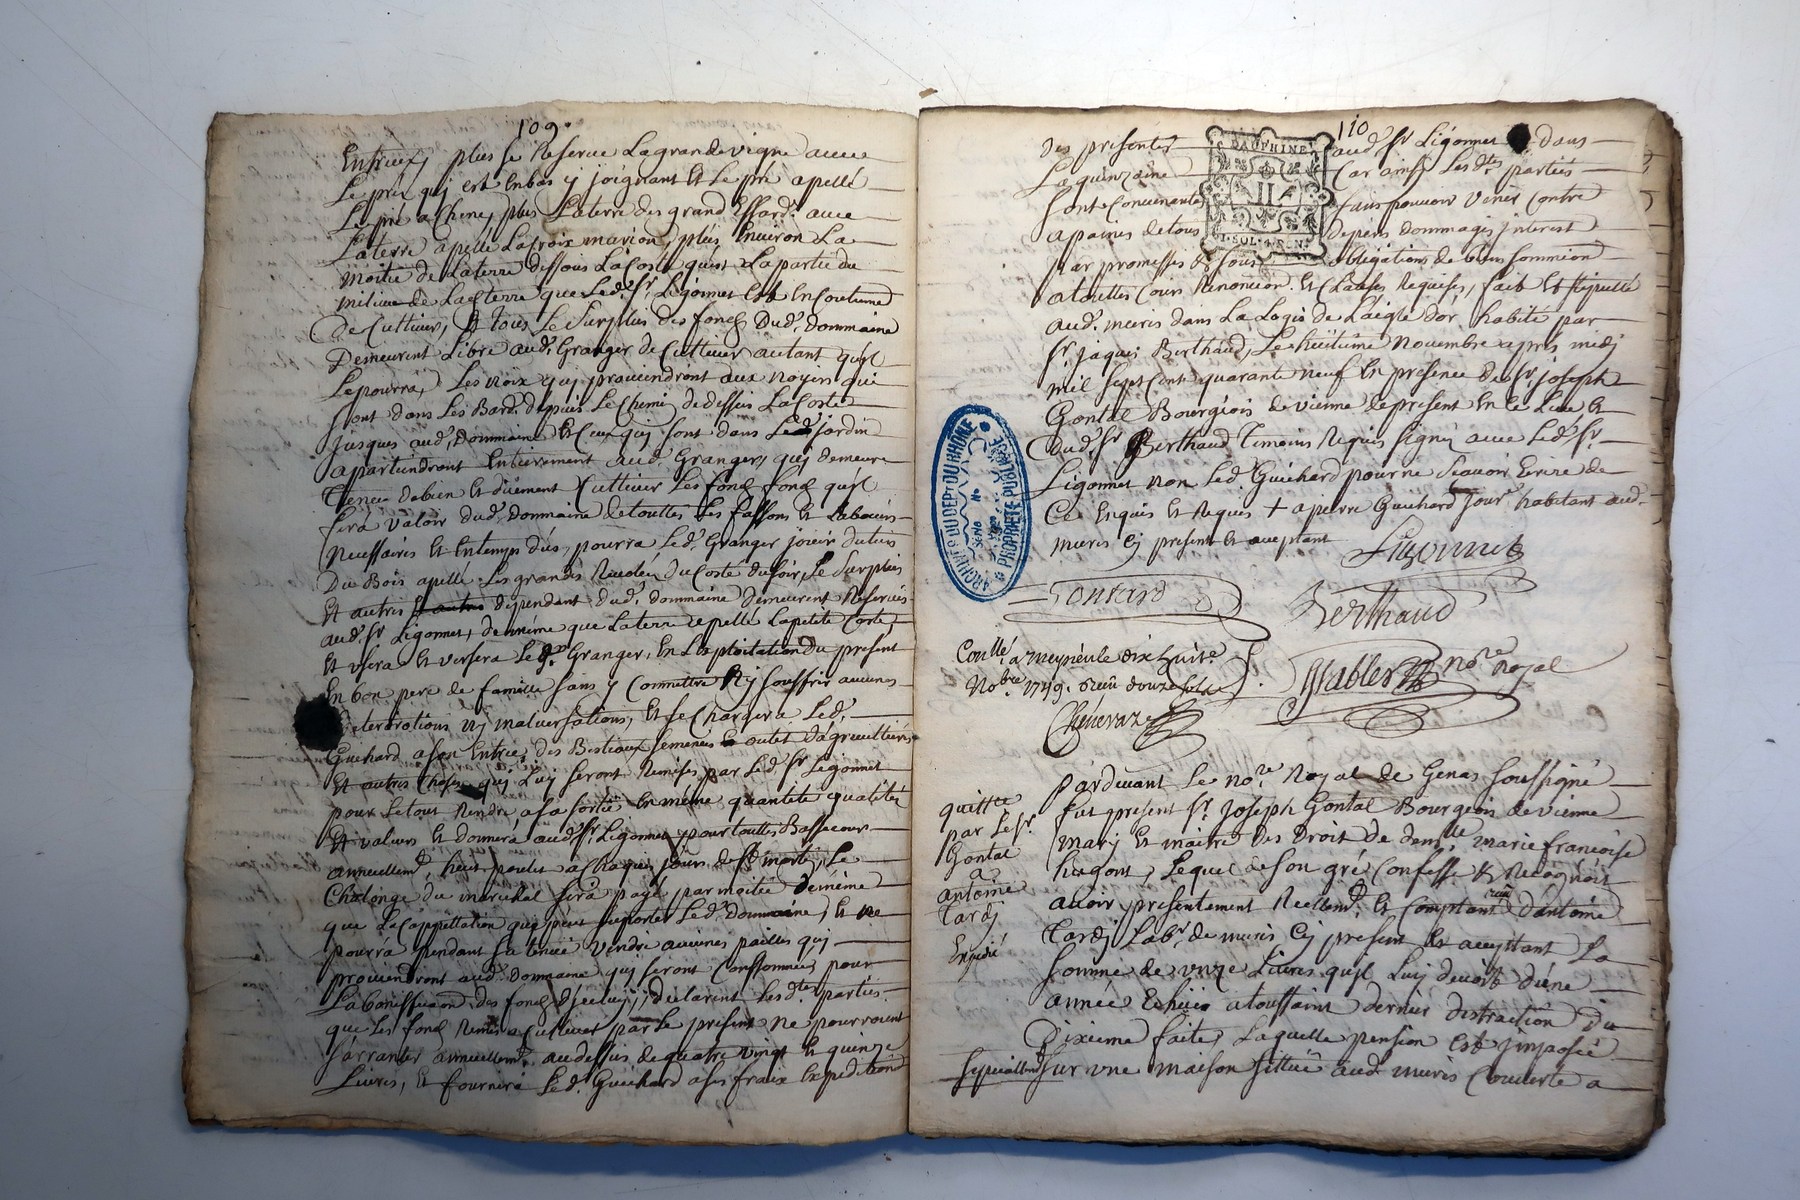 109.
Entrées, plus se Reserve La grande vigne avec
Le pré quj est en bas y joignant Et Le pré apellé
Le pré a Chene, plus La terre des grand Essard avec
La terre apellé La Croix marion, plus Environ La
moitié de La terre dessous La Coste quest La partie du
milieu de La terre que Led. Sr. Ligonnet Est En Coutume
De Cultiver, Et Tous Le Surplus des fonds Dud. dommaine
Demeurent Libre aud. Granger de Cultiver autant qu'jl
Le pourra, Les noix quj proviendront aux noyers qui
Sont dans Les Bard. depuis Le Chemin de dessus La Coste
Jusques aud. Dommaine Et Ceux quj sont dans Led. jardin
apartiendront Entierement aud. Granger, quj demeure
Tenu de bien Et düement Cultiver Les fonds qu'jl
fera valoir dud. Dommaine de touttes Les fassons Et Labours
necessaires Et En temps dus, pourra Led. Granger jouir du tiers
Du Bois apellé Les grandes du Costé du Soir, Le Surplus
Et autres dependant dud. dommaine demeurent Reservés
aud. Sr. Ligonnet, de même que La terre apellé La petite Coste,
Et Usera Et versera Led. Granger, En Lexploitation du present
En bon pere de famille sans y Commettre Nj souffrir aucunes
deteriorations nj malversations, Et se Chargera Led.
Guichard a son Entrée des Bestiaux, semences Et outils d'agriculture
Et autres Choses quj Luj seront Remises par Led. Sr. Ligonnet
pour Le tout Rendre a sa sortie En même quantité qualités
Et valeurs Et donnera aud. Sr. Ligonnet pour touttes Bassecours
annuellemt. huit poulets a Chaques jours de St. martin, Le
Chalonge du marechal sera payé par moitié de même
que La Cappitation que peut suporter Led. Dommaine, Et ne
pourra pendant sa tenue vendre aucunes pailles quj
proviendront aud. Dommaine quj seront Consommées pour
La bonification des fonds d'jceluy; declarent Lesdtes. parties
que Les fonds Remis a Cultiver par Le present ne pourroient
s'arranter annuellemt. au dessus de quatre vingt Et quinze
Livres, Et fournira Led. Guichard a ses fraix Expedition
110
des presentes aud. Sr. Ligonnet dans
La quinzaine Car ainsi Lesdtes. parties
Sont Convenantes sans pouvoir venir Contre
a paines de tous depens dommages jnterest
par promesses Et sous obligations de biens sommion
a touttes Cours Renoncion. Et Clauses Requises, fait Et stipullé
aud. muris dans La Logis de L'aigle d'or habité par
Sr. jaques Berthaud, Le huitieme Novembre apres midj
mil Sept Cent quarante neuf En presence de Sr. joseph
Gontal Bourgeois de vienne de present En Ce Lieu Et
Dud. Sr. Berthaud Temoins Requis signés avec Led. Sr.
Ligonnet non Led. Guichard pour ne sçavoir Ecrire de
Ce Enquis Et Requis + a pierre Guichard Jour. habitant aud.
muris Cj present Et aceptant
Ligonnet
Berthaud
nore. Royal
DAUPHINE
I·SOL·4·DEN
ARCHIVES DU DEPT DU RHONE
PROPRIETE PUBLIQUE
Conllé. a meyzieule dix huit
Nobre. 1749. Reçu douze sols
Chéneraz
quittce
par Le Sr.
Gontal
a
antoine
Tardj
Expedié
Pardevant Le nore. Royal de Genas soussigné
fut present Sr. Joseph Gontal Bourgeois de vienne
marj Et maitre des Droit de demlle. marie francoise
hugons, Lequel de son gré Confesse Et Recognois
avoir presentement Reellemt. Et Comptant reçu d'antoine
Tardj Labr. de muris Cj present Et aceptant La
somme de unze Livres qu'jl Luj devoit d'une
année Echüe a toussaint dernier distraction Du
Dixieme faite, Laquelle pension Est jmposée
speciallemt. sur une maison sittuée aud. muris Couverte a